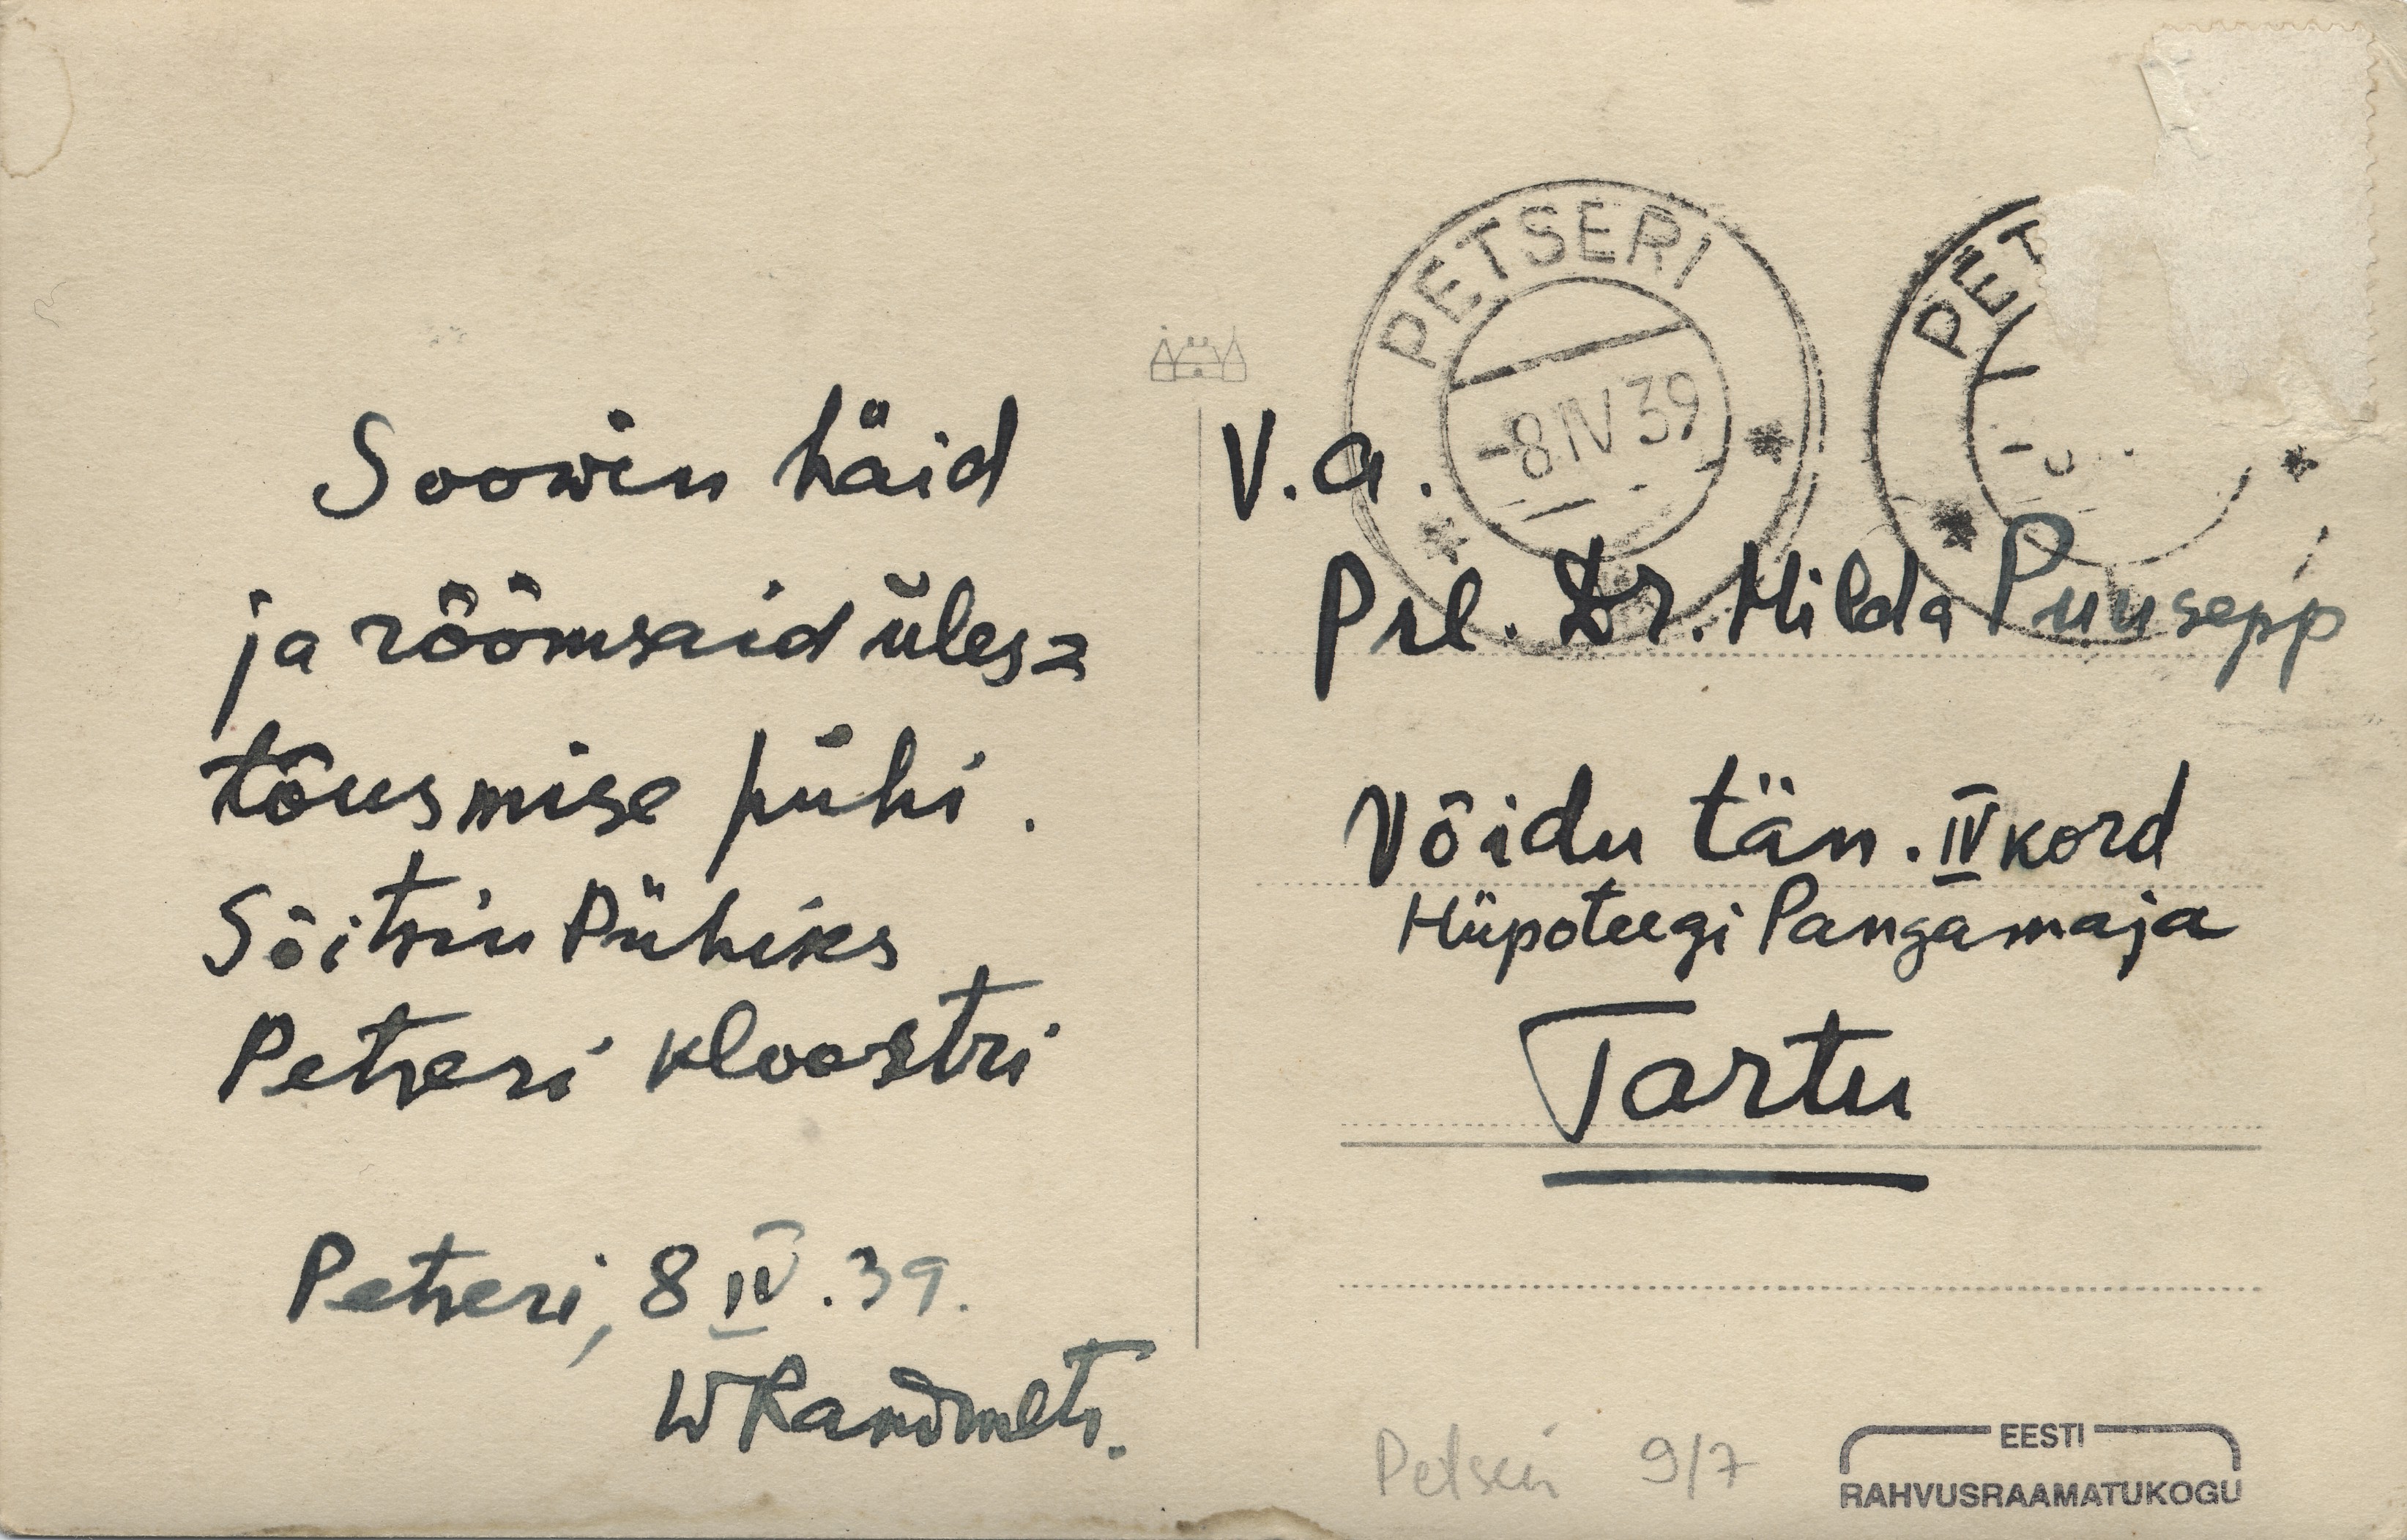 Soowin häid
ja rõõmsaid üles=
tõusmise pühi.
Sõitsin Pühiks
Petseri kloostri
Petseri, 8 IV. 39.
W Randmets.
PETSERI
-8 IV 39
PET
V. a.
Prl. Dr. Hilda Puusepp
Võidu tän. IV kord
Hüpoteegi Pangamaja
Tartu
Petseri 9/7
EESTI
RAHVUSRAAMATUKOGU